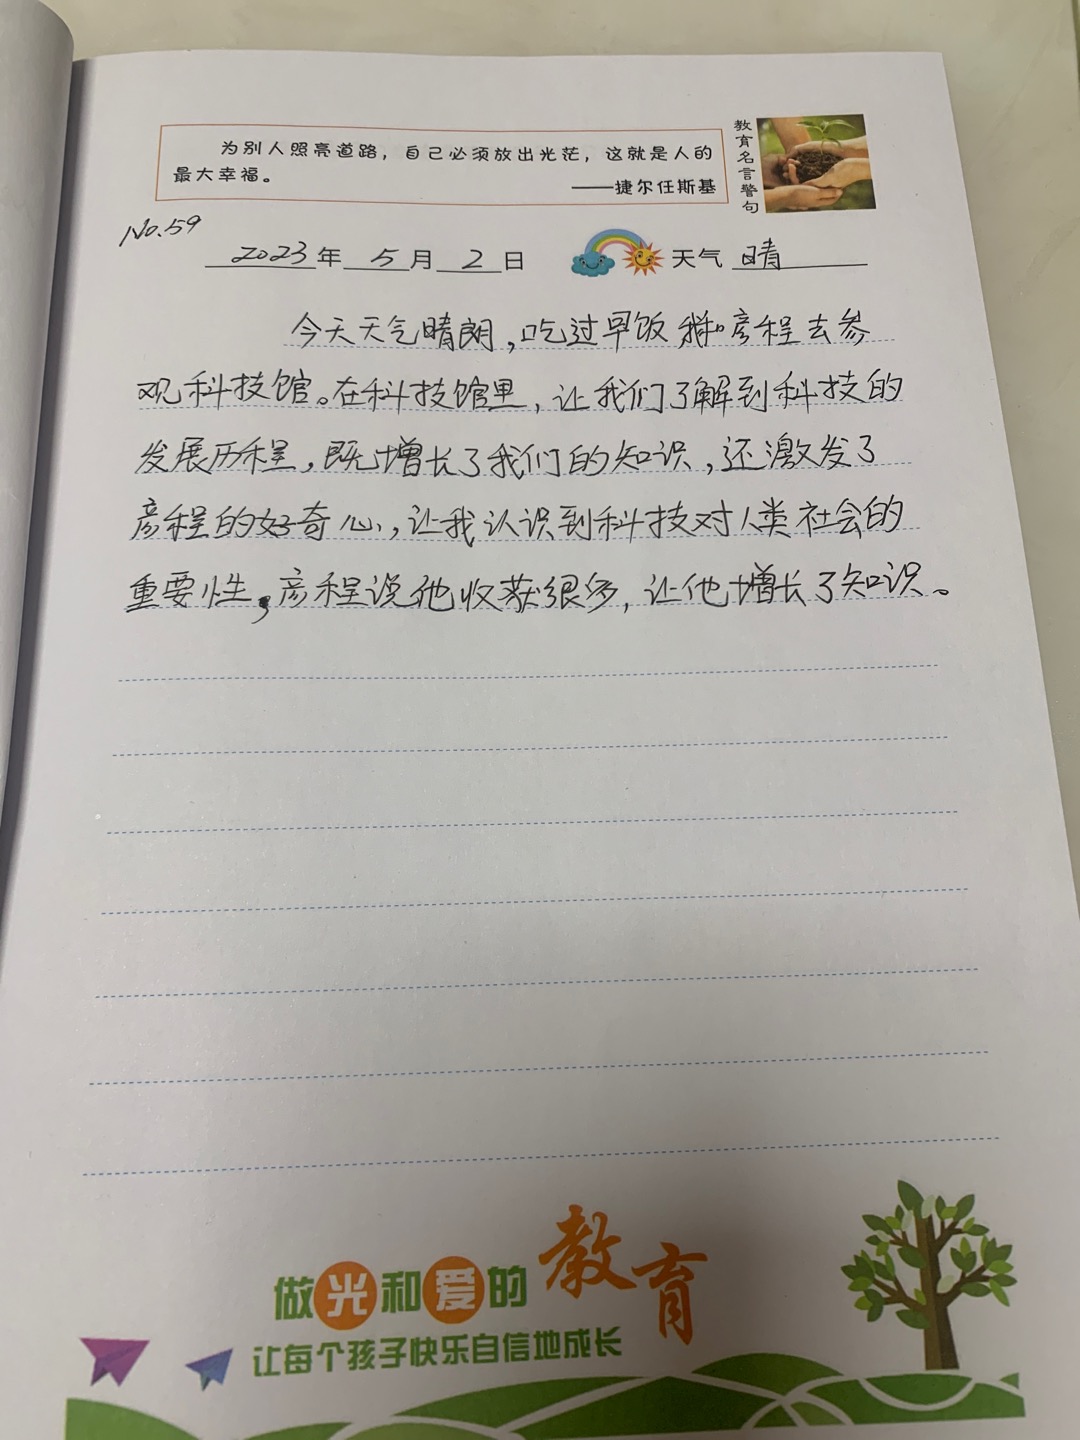 为别人照亮道路，自己必须放出光芒，这就是人的
最大幸福。
——捷尔任斯基
教育名言警句
No.59
2023年 5月 2日
天气 晴
今天天气晴朗，吃过早饭我和彦程去参
观科技馆。在科技馆里，让我们了解到科技的
发展历程，既增长了我们的知识，还激发了
彦程的好奇心，让我认识到科技对人类社会的
重要性，彦程说他收获很多，让他增长了知识。
做光和爱的教育
让每个孩子快乐自信地成长